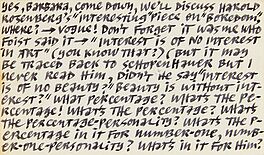 YES, BARBARA, COME DOWN, WE'LL DISCUSS HAROLD
ROSENBERG'S "INTERESTING" PIECE ON "BOREDOM".
WHERE? → VOGUE! DON'T FORGET IT WAS ME WHO
FOIST SAID IT → "INTEREST IS OF NO INTEREST
IN ART" (YOU KNOW THAT?) BUT IT MAY
BE TRACED BACK TO SCHOPENHAUER BUT I
NEVER READ HIM, DIDN'T HE SAY "INTEREST
IS OF NO BEAUTY" "BEAUTY IS WITHOUT INT-
EREST?" WHAT PERCENTAGE? WHATS THE PE-
RCENTAGE! WHATS THE PERCENTAGE? WHATS
THE PERCENTAGE-PERSONALITY? WHATS THE P-
ERCENTAGE IN IT FOR NUMBER-ONE, NUMB-
ER-ONE-PERSONALITY? WHATS IN IT FOR HIM?